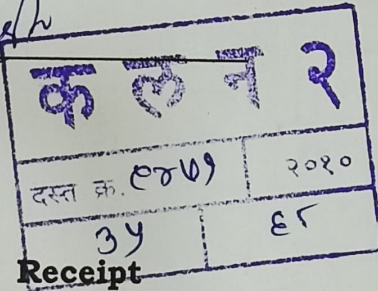 क ल न २
दस्त क्र. ९४७१ २०१०
३५ ६८
Receipt